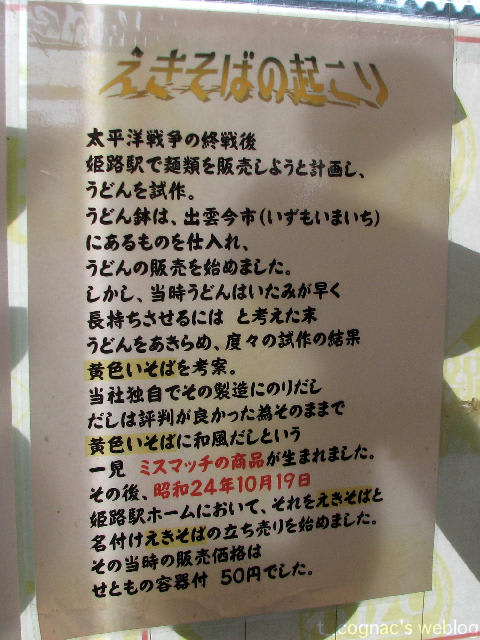 えきそばの起こり
太平洋戦争の終戦後
姫路駅で麺類を販売しようと計画し、
うどんを試作。
うどん鉢は、出雲今市(いずもいまいち)
にあるものを仕入れ、
うどんの販売を始めました。
しかし、当時うどんはいたみが早く
長持ちさせるには と考えた末
うどんをあきらめ、度々の試作の結果
黄色いそばを考案。
当社独自でその製造にのりだし
だしは評判が良かった為そのままで
黄色いそばに和風だしという
一見 ミスマッチの商品が生まれました。
その後、昭和24年10月19日
姫路駅ホームにおいて、それをえきそばと
名付けえきそばの立ち売りを始めました。
その当時の販売価格は
せともの容器付 50円でした。
t_cognac's weblog